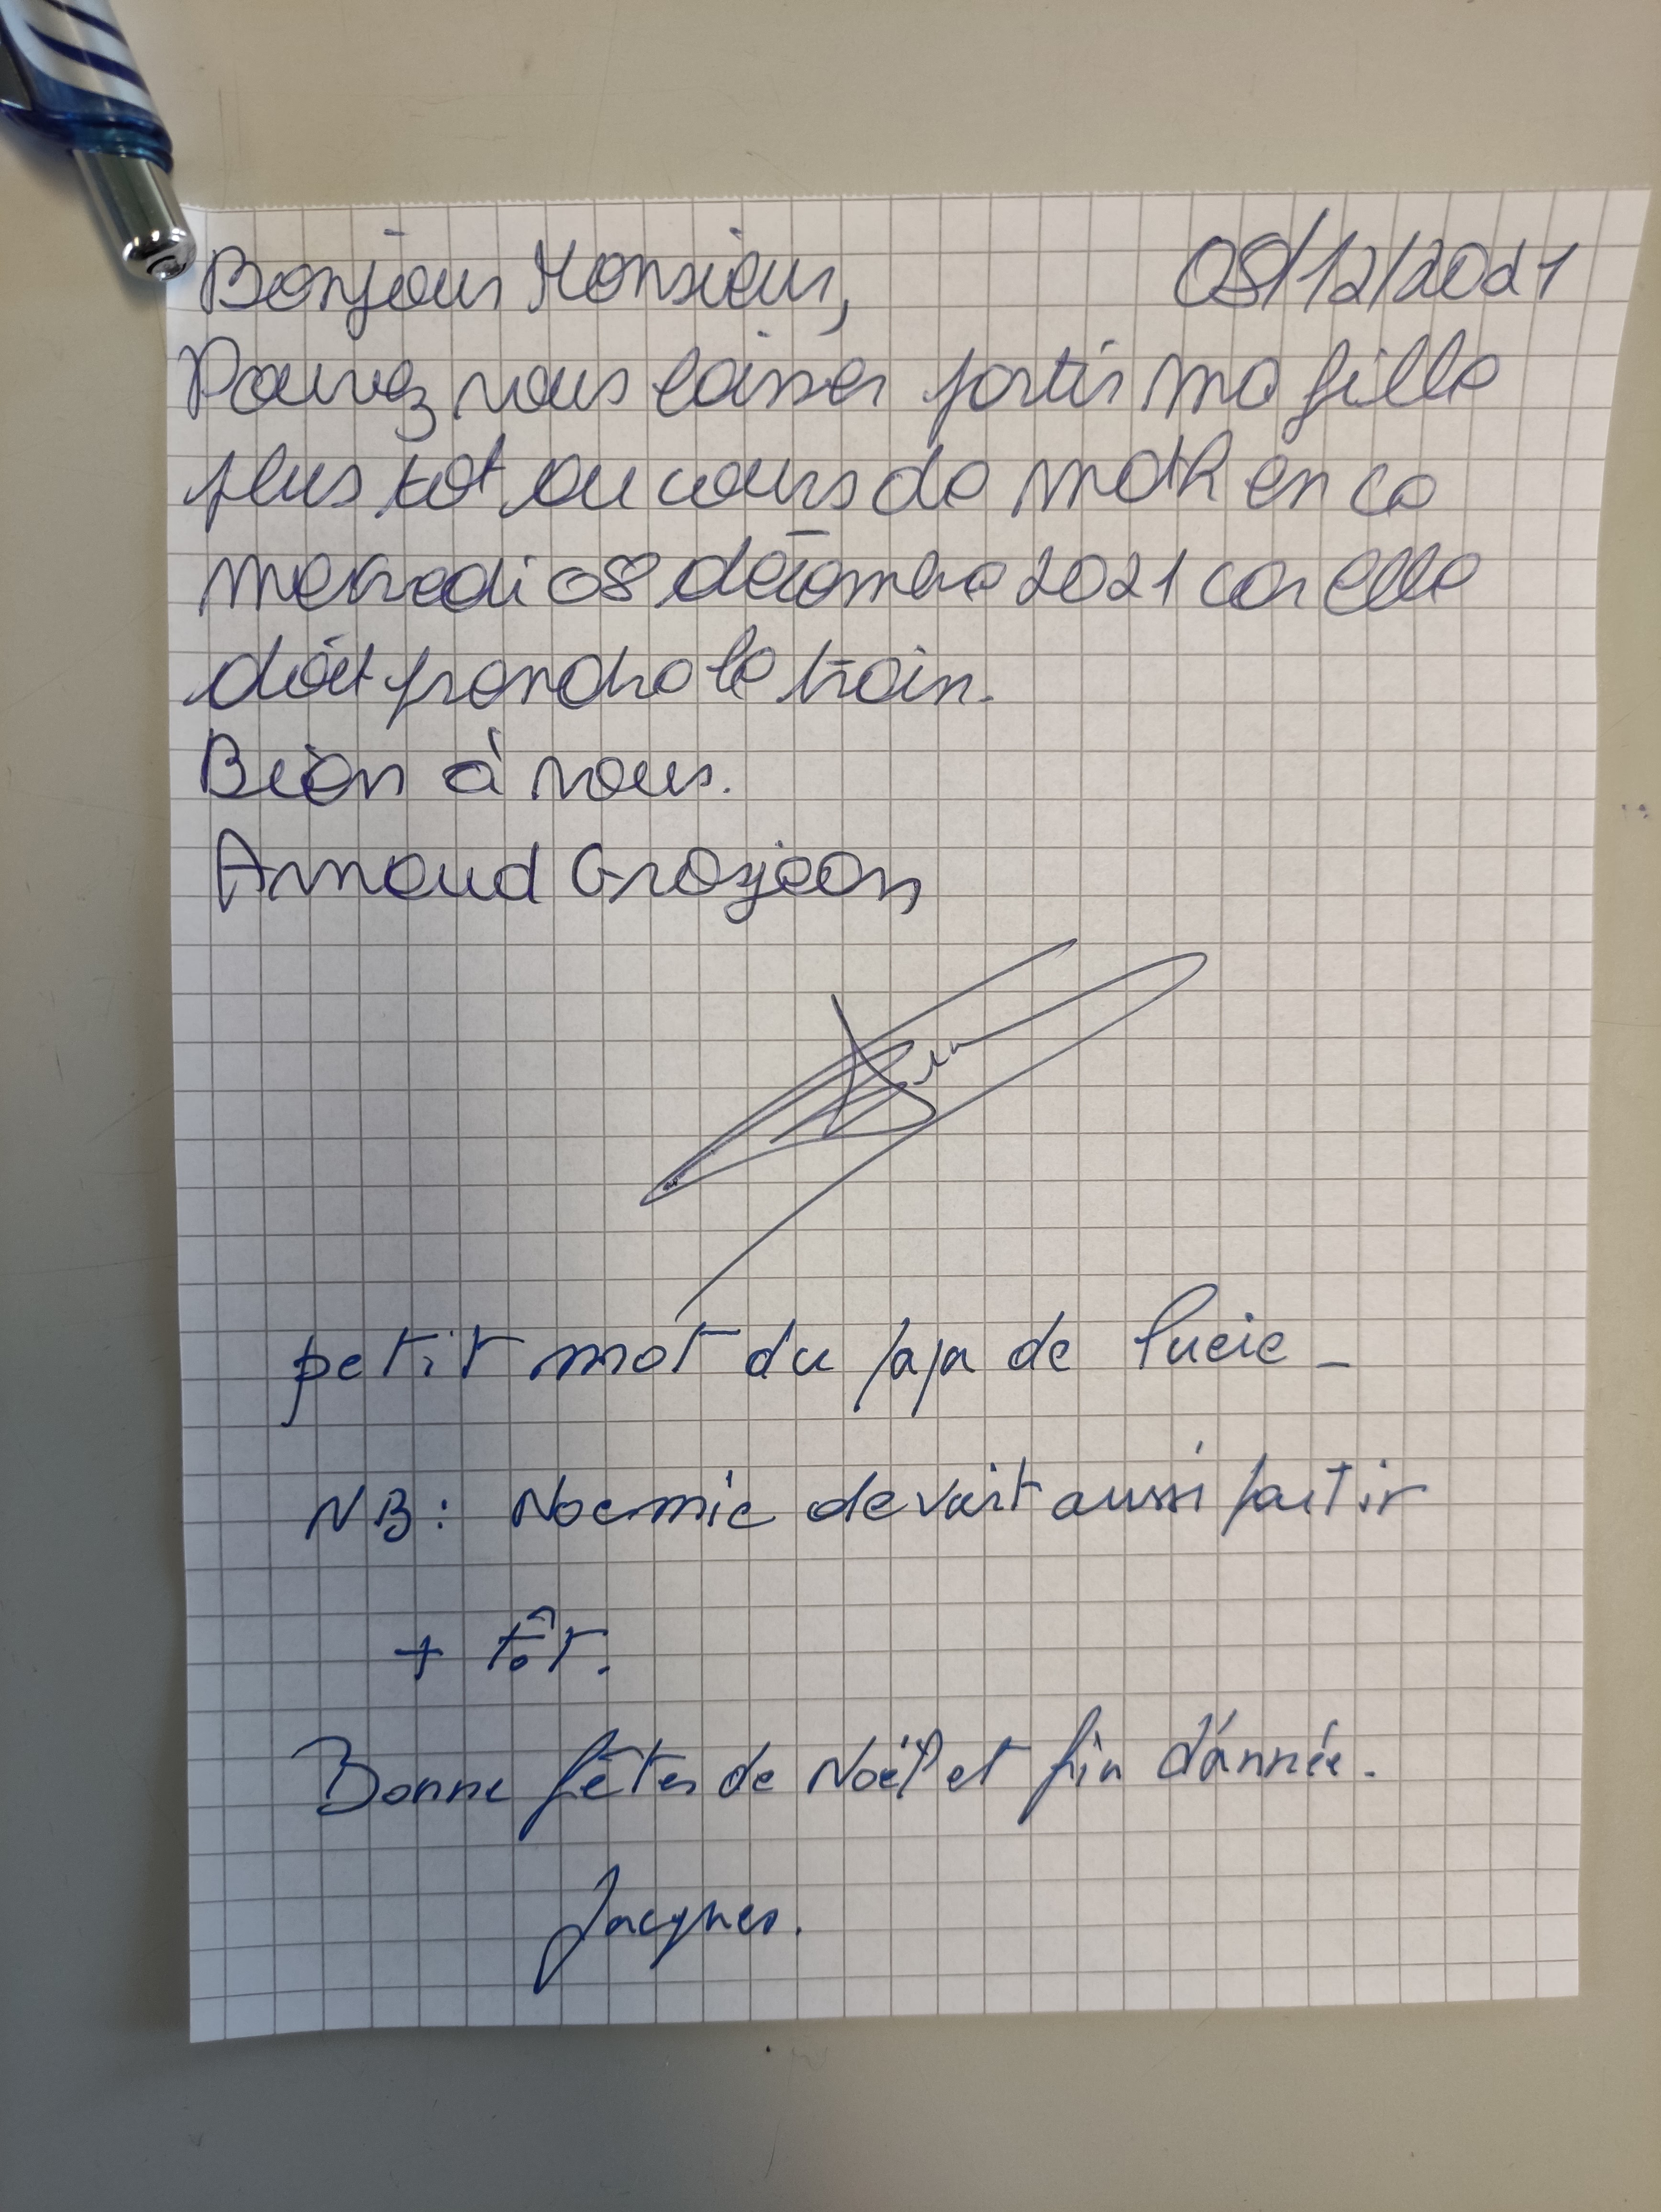 Bonjour Monsieur, 08/12/2021
Pouvez vous laisser sortir ma fille
plus tot au cours de math en ce
mercredi 08 décembre 2021 car elle
doit prendre le train.
Bien à vous.
Arnaud Grosjean
petit mot du papa de Lucie -
NB: Noemie devait aussi partir
+ tôt.
Bonne fêtes de Noël et fin d'année.
Jacques.